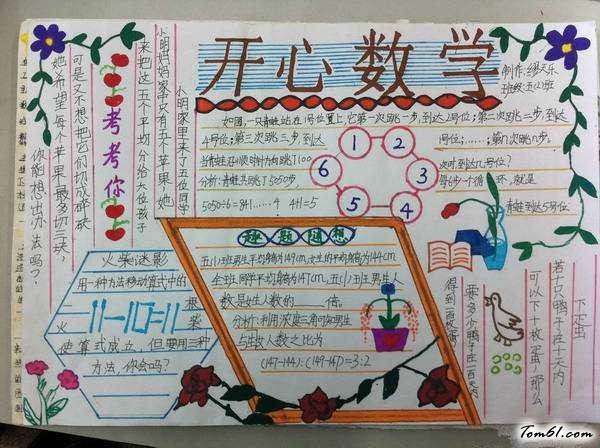 开心数学
制作:缪天乐
班级:五(2)班
小明家里来了五位同学
小明妈妈家中只有五个苹果,她
来把这五个平均分给六位孩子
可是又不想把它们切成碎块
她希望每个苹果最多切三块,
你能想出办法吗?
考考你
如图,一只青蛙站在1号位置上,它第一次跳一步,到达2号位;第二次跳二步,到达
4号位;第三次跳三步,到达
1号位;……;第n次跳n步。
当青蛙沿顺时针方向跳了100
次时,到达几号位?
分析:青蛙共跳了5050步,
每6步一个循环,就是
5050÷6=841……4 4+1=5
青蛙到达5号位
1
2
3
4
5
6
火柴谜影
用一种方法移动算式中的
一根火柴
11-10=11
使算式成立,但要用三种
方法,你会吗?
趣题随想
五(1)班男生平均身高为149cm,女生的平均身高为144cm
全班同学平均身高为147cm,五(1)班男生人
数是女生人数的____倍。
分析:利用浓度三角可知男生
与女生人数之比为
(147-144):(149-147)=3:2
下蛋
若十只鸭子在十天内
可以下十枚蛋,那么
要多少鸭子在一百天内
得到一百枚蛋?
Tom61.com